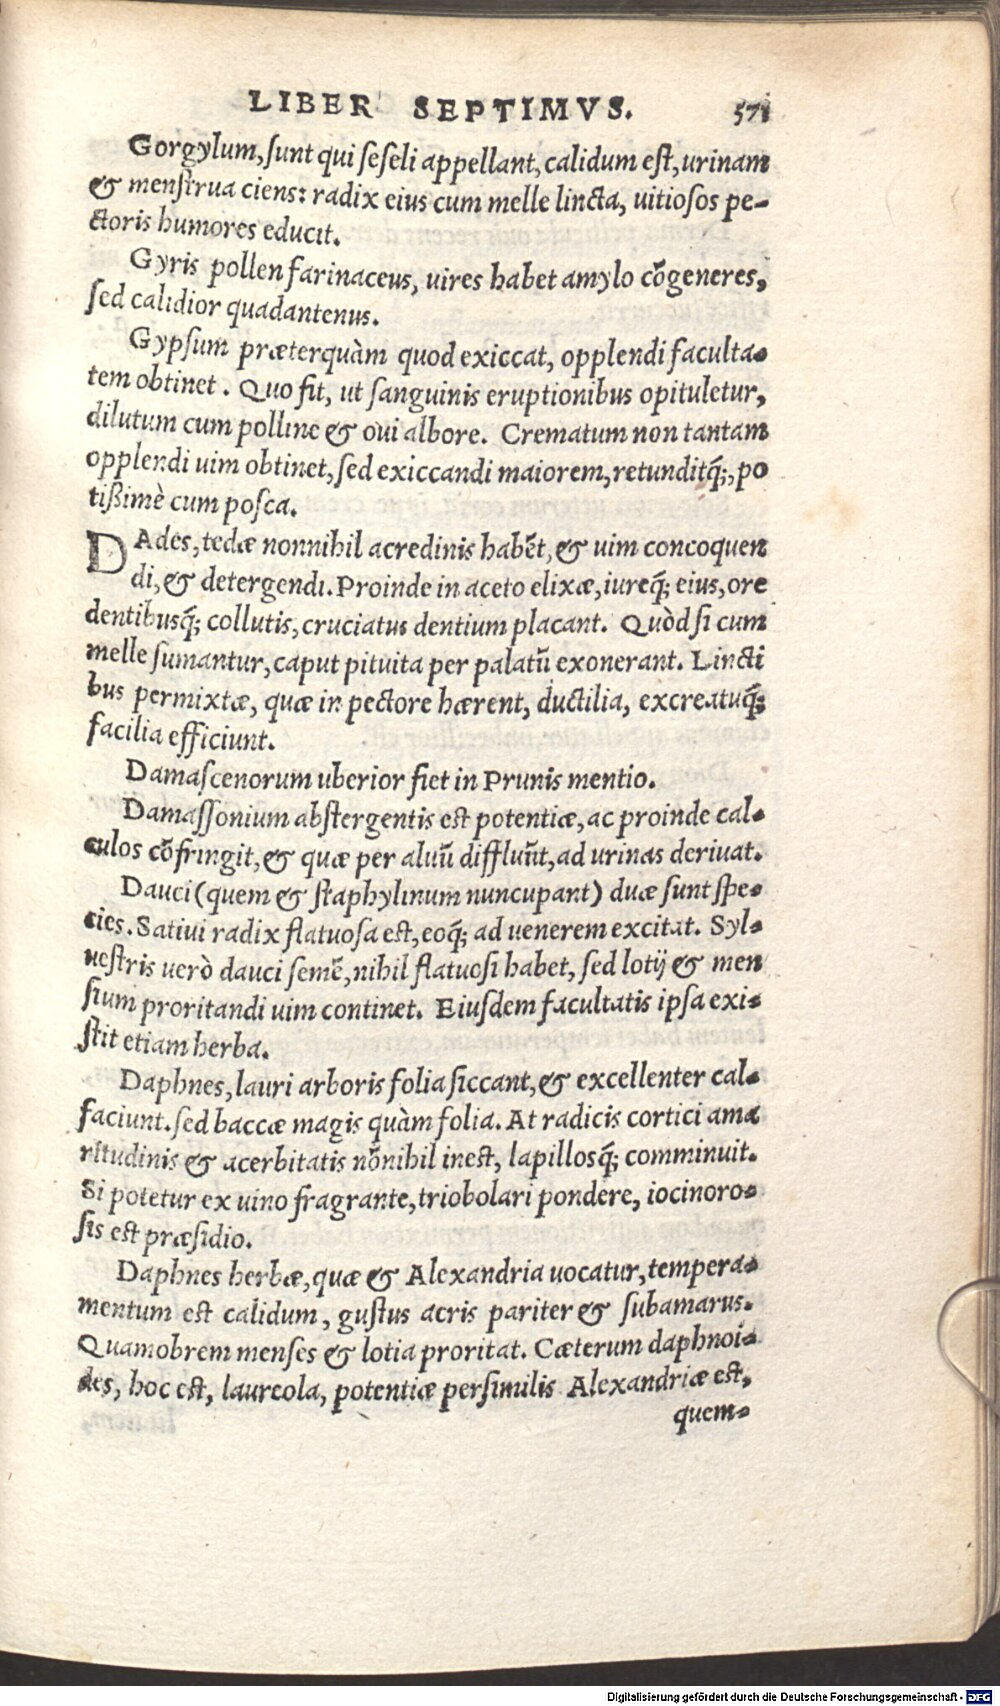 LIBER SEPTIMVS. 571
Gorgylum, sunt qui seseli appellant, calidum est, urinam
& menstrua ciens: radix eius cum melle lincta, uitiosos pe-
ctoris humores educit.
Gyris pollen farinaceus, uires habet amylo cõgeneres,
sed calidior quadantenus.
Gypsum præterquàm quod exiccat, opplendi faculta-
tem obtinet. Quo fit, ut sanguinis eruptionibus opituletur,
dilutum cum polline & oui albore. Crematum non tantam
opplendi uim obtinet, sed exiccandi maiorem, retunditq́;, po
tißimè cum posca.
DAdes, tedæ nonnihil acredinis habẽt, & uim concoquen
di, & detergendi. Proinde in aceto elixæ, iureq́; eius, ore
dentibusq́; collutis, cruciatus dentium placant. Quòd si cum
melle sumantur, caput pituita per palatũ exonerant. Lincti
bus permixtæ, quæ in pectore hærent, ductilia, excreatuq́;
facilia efficiunt.
Damascenorum uberior fiet in Prunis mentio.
Damassonium abstergentis est potentiæ, ac proinde cal-
culos cõfringit, & quæ per aluũ diffluũt, ad urinas deriuat.
Dauci (quem & staphylinum nuncupant) duæ sunt spe-
cies. Satiui radix flatuosa est, eoq́; ad uenerem excitat. Syl-
uestris uerò dauci semẽ, nihil flatuosi habet, sed lotij & men
sium proritandi uim continet. Eiusdem facultatis ipsa exi-
stit etiam herba.
Daphnes, lauri arboris folia siccant, & excellenter cal-
faciunt. sed baccæ magis quàm folia. At radicis cortici ama
ritudinis & acerbitatis nõnihil inest, lapillosq́; comminuit.
Si potetur ex uino fragrante, triobolari pondere, iocinoro-
sis est præsidio.
Daphnes herbæ, quæ & Alexandria uocatur, tempera-
mentum est calidum, gustus acris pariter & subamarus.
Quamobrem menses & lotia proritat. Cæterum daphnoi-
des, hoc est, laureola, potentiæ persimilis Alexandriæ est,
quem-
Digitalisierung gefördert durch die Deutsche Forschungsgemeinschaft - DFG